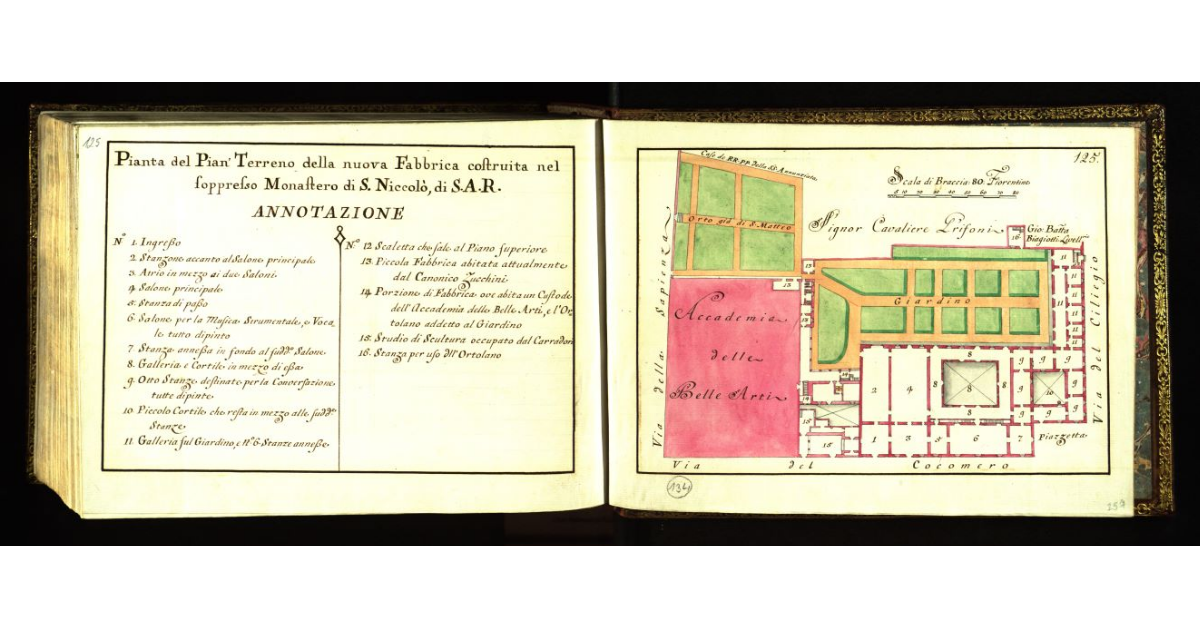 125
Pianta del Pian' Terreno della nuova Fabbrica costruita nel
soppresso Monastero di S. Niccolò, di S.A.R.
ANNOTAZIONE
N.° 1. Ingresso
2. Stanzone accanto al Salone principale
3. Atrio in mezzo ai due Saloni
4. Salone principale
5. Stanza di passo
6. Salone per la Musica Strumentale, e Voca
le tutto dipinto
7. Stanza annessa in fondo al sudd.° Salone
8. Galleria e Cortile in mezzo di essa
9. Otto Stanze destinate per la Conversazione
tutte dipinte
10. Piccolo Cortile che resta in mezzo alle sudd.e
Stanze
11. Galleria sul Giardino, e N.° 6. Stanze annesse
N.° 12. Scaletta che sale al Piano superiore
13. Piccola Fabbrica abitata attualmente
dal Canonico Zucchini
14. Porzione di Fabbrica ove abita un Custode
dell'Accademia delle Belle Arti, e l'Or
tolano addetto al Giardino
15. Studio di Scultura occupato dal Carradori
16. Stanza per uso dll'Ortolano
125.
Case de RR. PP. della SS. Annunziata
Scala di Braccia 80 Fiorentine
Orto già di S. Matteo
Signor Cavaliere Prisoni
Gio: Batta
Biagiotti Livell.
16
13
13
13
Giardino
Accademia
delle
Belle Arti
Via della Sapienza
Via del Ciliegio
11
11
11
11
11
11
14
2
4
8
8
8
8
9
9
9
9
9
9
9
9
10
15
15
1
3
5
6
7
Piazzetta
Via del Cocomero
134